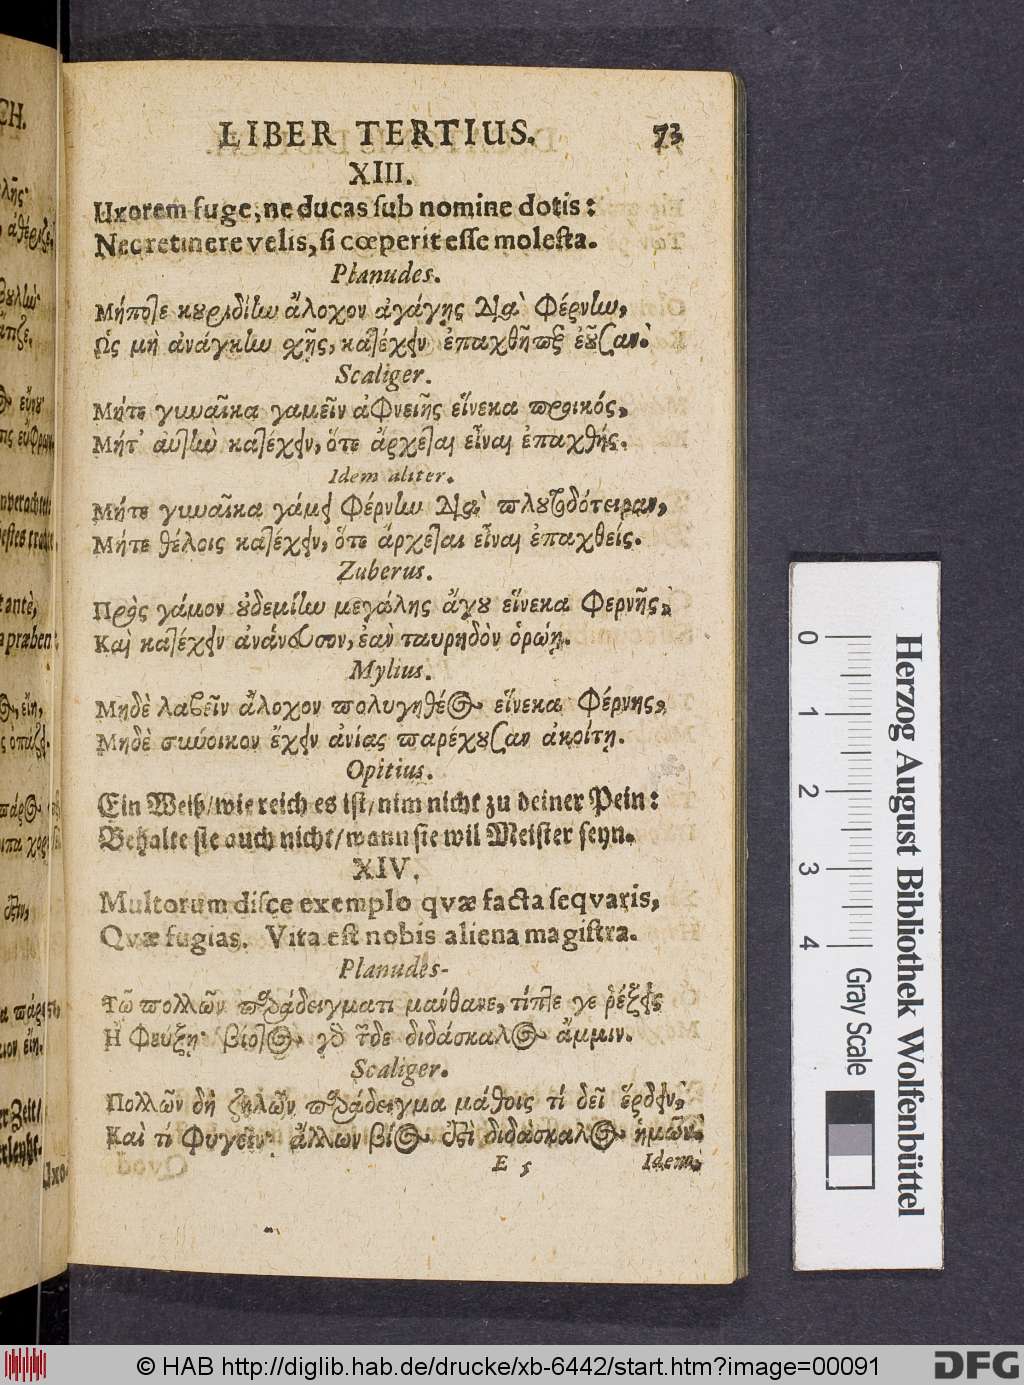 LIBER TERTIUS. 73
XIII.
Uxorem fuge, ne ducas ſub nomine dotis:
Nec retinere velis, ſi cœperit eſſe moleſta.
Planudes.
Μήποτε κουριδίην ἄλοχον ἀγάγῃς διὰ φέρνην,
Ὡς μὴ ἀνάγκην σχῇς, κατέχειν ἐπαχθῆ περ ἐοῦσαν.
Scaliger.
Μήτε γυναῖκα γαμεῖν ἀφνειῆς εἵνεκα προικός,
Μήτ' αὐτὴν κατέχειν, ὅτε ἄρχεται εἶναι ἐπαχθής.
Idem aliter.
Μήτε γυναῖκα γάμει φέρνην διὰ πλουτοδότειραν,
Μήτε θέλοις κατέχειν, ὅτε ἄρχεται εἶναι ἐπαχθείς.
Zuberus.
Πρὸς γάμον οὐδεμίην μεγάλης ἄγου εἵνεκα φερνῆς,
Καὶ κατέχειν ἀνάνευσον, ἐὰν ταυρηδὸν ὁρώῃ.
Mylius.
Μηδὲ λαβεῖν ἄλοχον πολυγηθέος εἵνεκα φέρνης,
Μηδὲ σύνοικον ἔχειν ἀνίας παρέχουσαν ἀκοίτῃ.
Opitius.
Ein Weib/ wie reich es iſt/ nim nicht zu deiner Pein:
Behalte ſie auch nicht/ wann ſie wil Meiſter ſeyn.
XIV.
Multorum diſce exemplo qvæ facta ſeqvaris,
Qvæ fugias. Vita eſt nobis aliena magiſtra.
Planudes-
Τῷ πολλῶν παραδείγματι μάνθανε, τίπτε γε ῥέξεις
Ἢ φευξῇ· βίοτος γὰρ τόδε διδάσκαλος ἄμμιν.
Scaliger.
Πολλῶν δὴ ζηλῶν παράδειγμα μάθοις τί δεῖ ἔρδειν,
Καὶ τί φυγεῖν· ἄλλων βίος ἐστὶ διδάσκαλος ἡμῶν.
E 5 Idem
Herzog August Bibliothek Wolfenbüttel
0 1 2 3 4
Gray Scale
© HAB http://diglib.hab.de/drucke/xb-6442/start.htm?image=00091
DFG